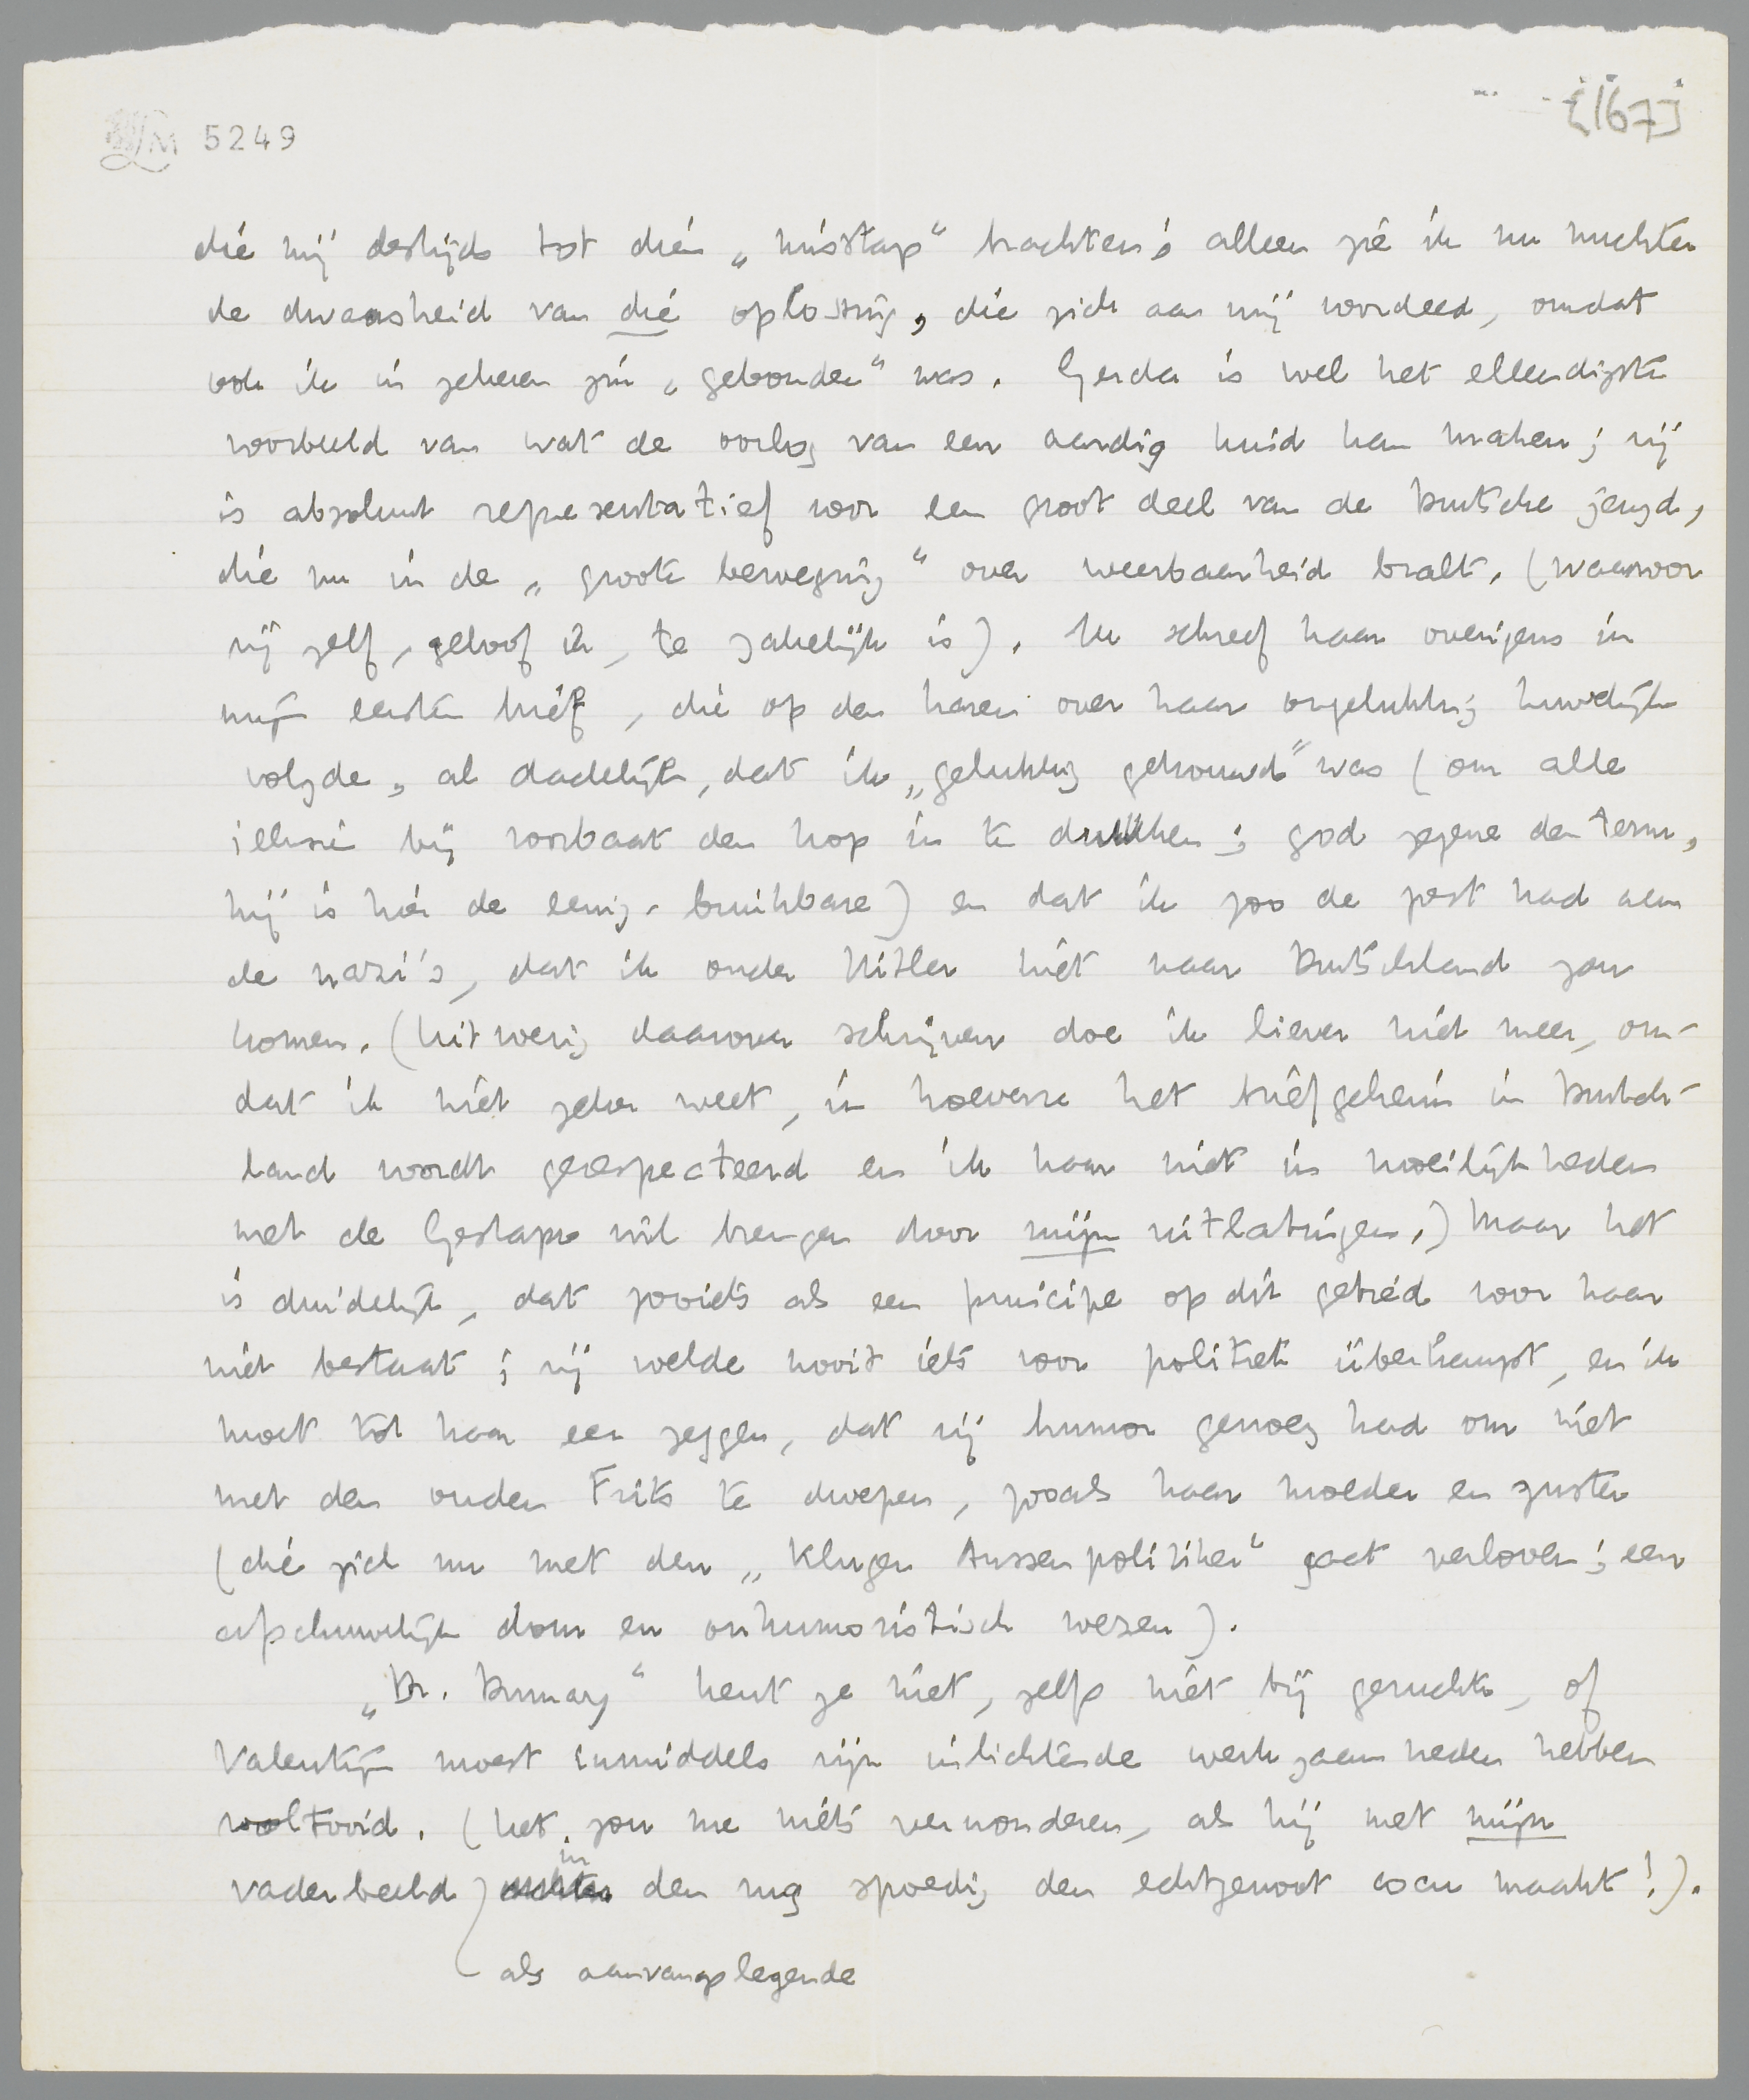 5249
[167]
die mij destijds tot dien „misstap" brachten; alleen zie ik nu nuchter
de dwaasheid van die oplossing, die zich aan mij voordeed, omdat
ook ik in zekeren zin „gebonden" was. Gerda is wel het ellendigste
voorbeeld van wat de oorlog van een aardig kind kan maken; zij
is absoluut representatief voor een groot deel van de Duitsche jeugd,
die nu in de „groote beweging" over weerbaarheid bralt. (waarvoor
zij zelf, geloof ik, te zakelijk is). Ik schreef haar overigens in
mijn eersten brief, die op den haren over haar ongelukkig huwelijk
volgde, al dadelijk, dat ik „gelukkig getrouwd" was (om alle
illusie bij voorbaat den kop in te drukken; god zegene den term,
hij is hier de eenig-bruikbare) en dat ik zoo de pest had aan
de nazi's, dat ik onder Hitler niet naar Duitschland zou
komen. (Uitvoerig daarover schrijven doe ik liever niet meer, om-
dat ik niet zeker weet, in hoeverre het briefgeheim in Duitsch-
land wordt gerespecteerd en ik haar niet in moeilijkheden
met de Gestapo wil brengen door mijn uitlatingen.) Maar het
is duidelijk, dat zooiets als een principe op dit gebied voor haar
niet bestaat; zij voelde nooit iets voor politiek überhaupt, en ik
moet tot haar eer zeggen, dat zij humor genoeg had om niet
met den ouden Frits te dwepen, zooals haar moeder en zuster
(die zich nu met den „klugen Aussenpolitiker" gaat verloven; een
afschuwelijk dom en onhumoristisch wezen).
„Dr. Dumay" kent ze niet, zelfs niet bij geruchte, of
Valentijn moest inmiddels zijn inlichtende werkzaamheden hebben
voltooid. (het zou me niets verwonderen, als hij met mijn
vaderbeeld in den rug spoedig den echtgenoot ocan maakt!).
als aanvangslegende